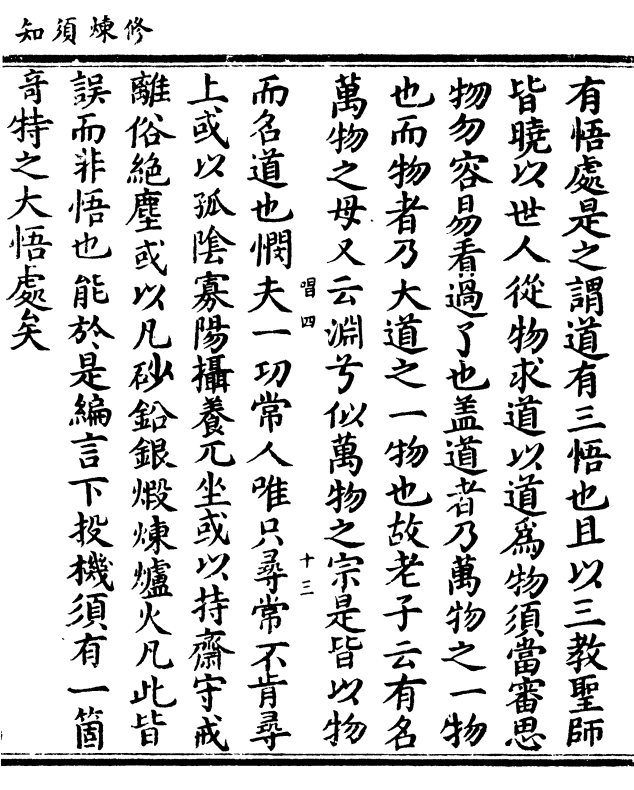 修煉須知
有悟處是之謂道有三悟也且以三教聖師
皆曉以世人從物求道以道爲物須當審思
物勿容易看過了也盖道者乃萬物之一物
也而物者乃大道之一物也故老子云有名
萬物之母又云淵兮似萬物之宗是皆以物
唱四
十三
而名道也憫夫一切常人唯只尋常不肯尋
上或以孤陰寡陽攝養兀坐或以持齋守戒
離俗絶塵或以凡砂鉛銀煅煉爐火凡此皆
誤而非悟也能於是編言下投機須有一箇
竒特之大悟處矣